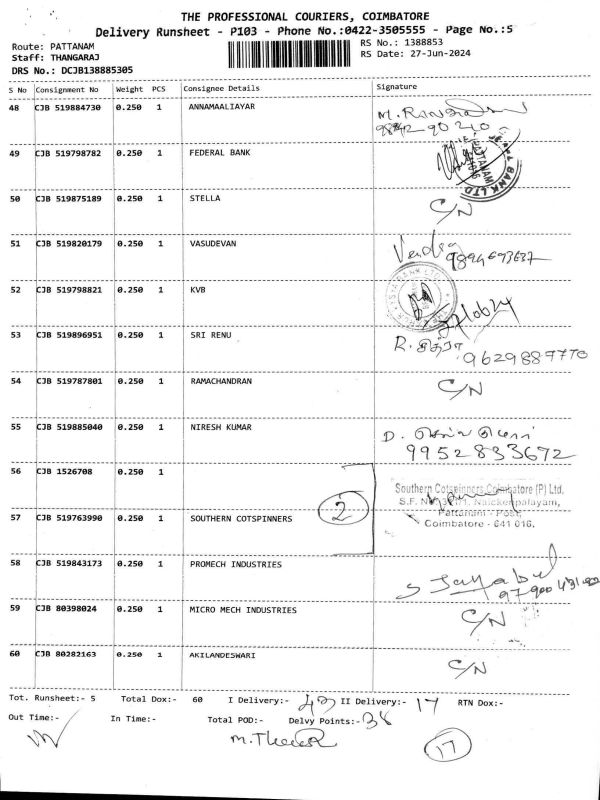 THE PROFESSIONAL COURIERS, COIMBATORE
Delivery Runsheet - P103 - Phone No.:0422-3505555 - Page No.:5
Route: PATTANAM
RS No.: 1388853
Staff: THANGARAJ
RS Date: 27-Jun-2024
DRS No.: DCJB138885305
S No Consignment No Weight PCS Consignee Details Signature
48 CJB 519884730 0.250 1 ANNAMAALIAYAR
49 CJB 519798782 0.250 1 FEDERAL BANK
BANK LTD
50 CJB 519875189 0.250 1 STELLA C/N
51 CJB 519820179 0.250 1 VASUDEVAN
52 CJB 519798821 0.250 1 KVB
53 CJB 519896951 0.250 1 SRI RENU
54 CJB 519787801 0.250 1 RAMACHANDRAN C/N
55 CJB 519885040 0.250 1 NIRESH KUMAR
9952833672
56 CJB 1526708 0.250 1
Southern Cotspinners Coimbatore (P) Ltd.
Naickenpalayam,
Pattanam - Post,
Coimbatore - 641 016.
2
57 CJB 519763990 0.250 1 SOUTHERN COTSPINNERS
58 CJB 519843173 0.250 1 PROMECH INDUSTRIES
59 CJB 80398024 0.250 1 MICRO MECH INDUSTRIES C/N
60 CJB 80282163 0.250 1 AKILANDESWARI C/N
Tot. Runsheet:- 5 Total Dox:- 60 I Delivery:- 43 II Delivery:- 17 RTN Dox:-
Out Time:- In Time:- Total POD:- Delvy Points:- 38
17